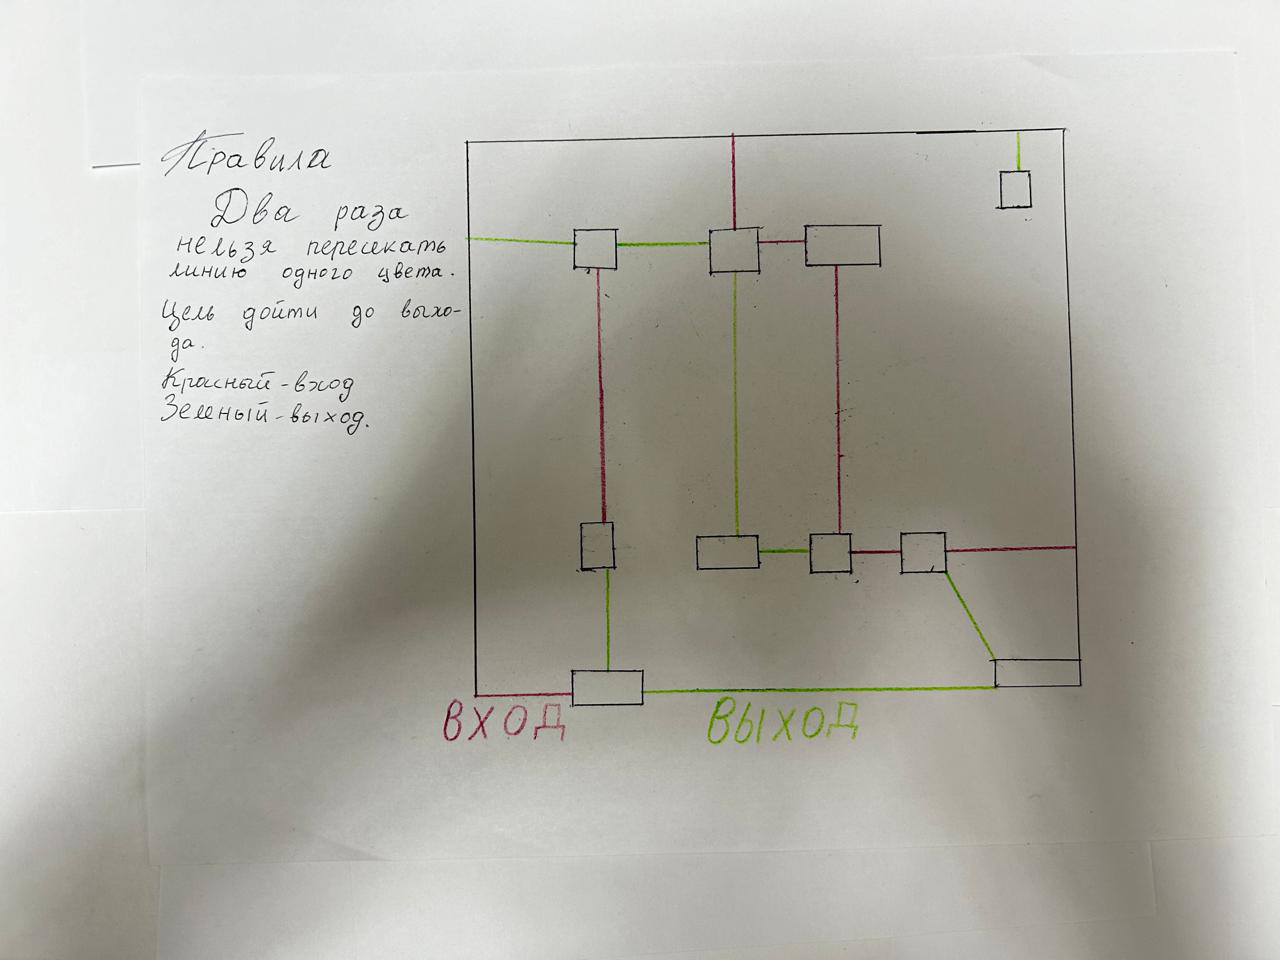 Правила
Два раза
нельзя пересекать
линию одного цвета.
Цель дойти до выхо-
да.
Красный-вход
Зеленый-выход.
ВХОД
ВЫХОД